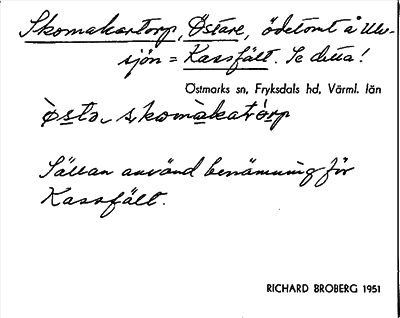 Skomakartorp, Östare, ödetomt å Ulv-
sjön = Kassfält. Se detta!
Östmarks sn, Fryksdals hd, Värml. län
östa skomakatorp
Sällan använd benämning för
Kassfält.
RICHARD BROBERG 1951